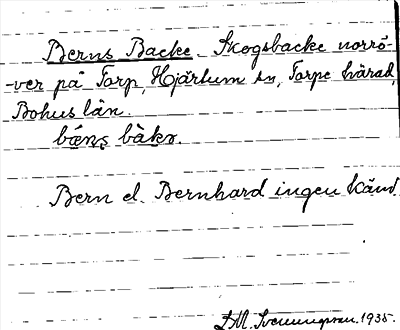 Berns Backe. Skogsbacke norrö-
-ver på Torp, Hjärtum sn, Torpe härad,
Bohus län.
bæ̀ns bàkə.
Bern el. Bernhard ingen känd.
D.M. Svenningsson. 1935.